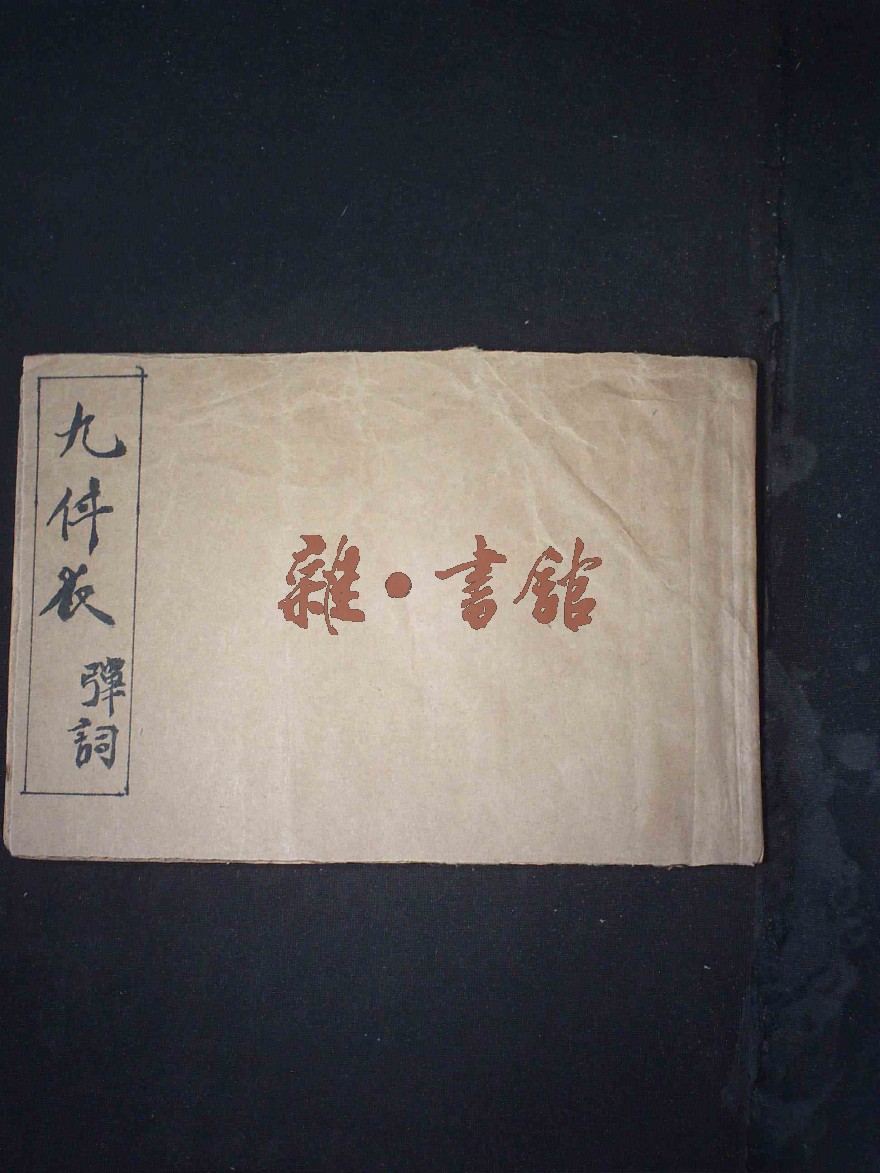 九件衣
彈詞
雜·書館